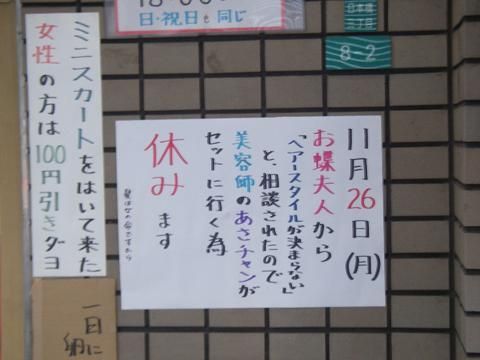 日・祝日も同じ
日本橋
三丁目
8-2
11月26日(月)
お蝶夫人から
「ヘアースタイルが決まらない」
と、相談されたので
美容師のあさチャンが
セットに行く為
休みます
髪は女の命ですから
ミニスカートをはいて来た
女性の方は100円引きダヨ
一日に